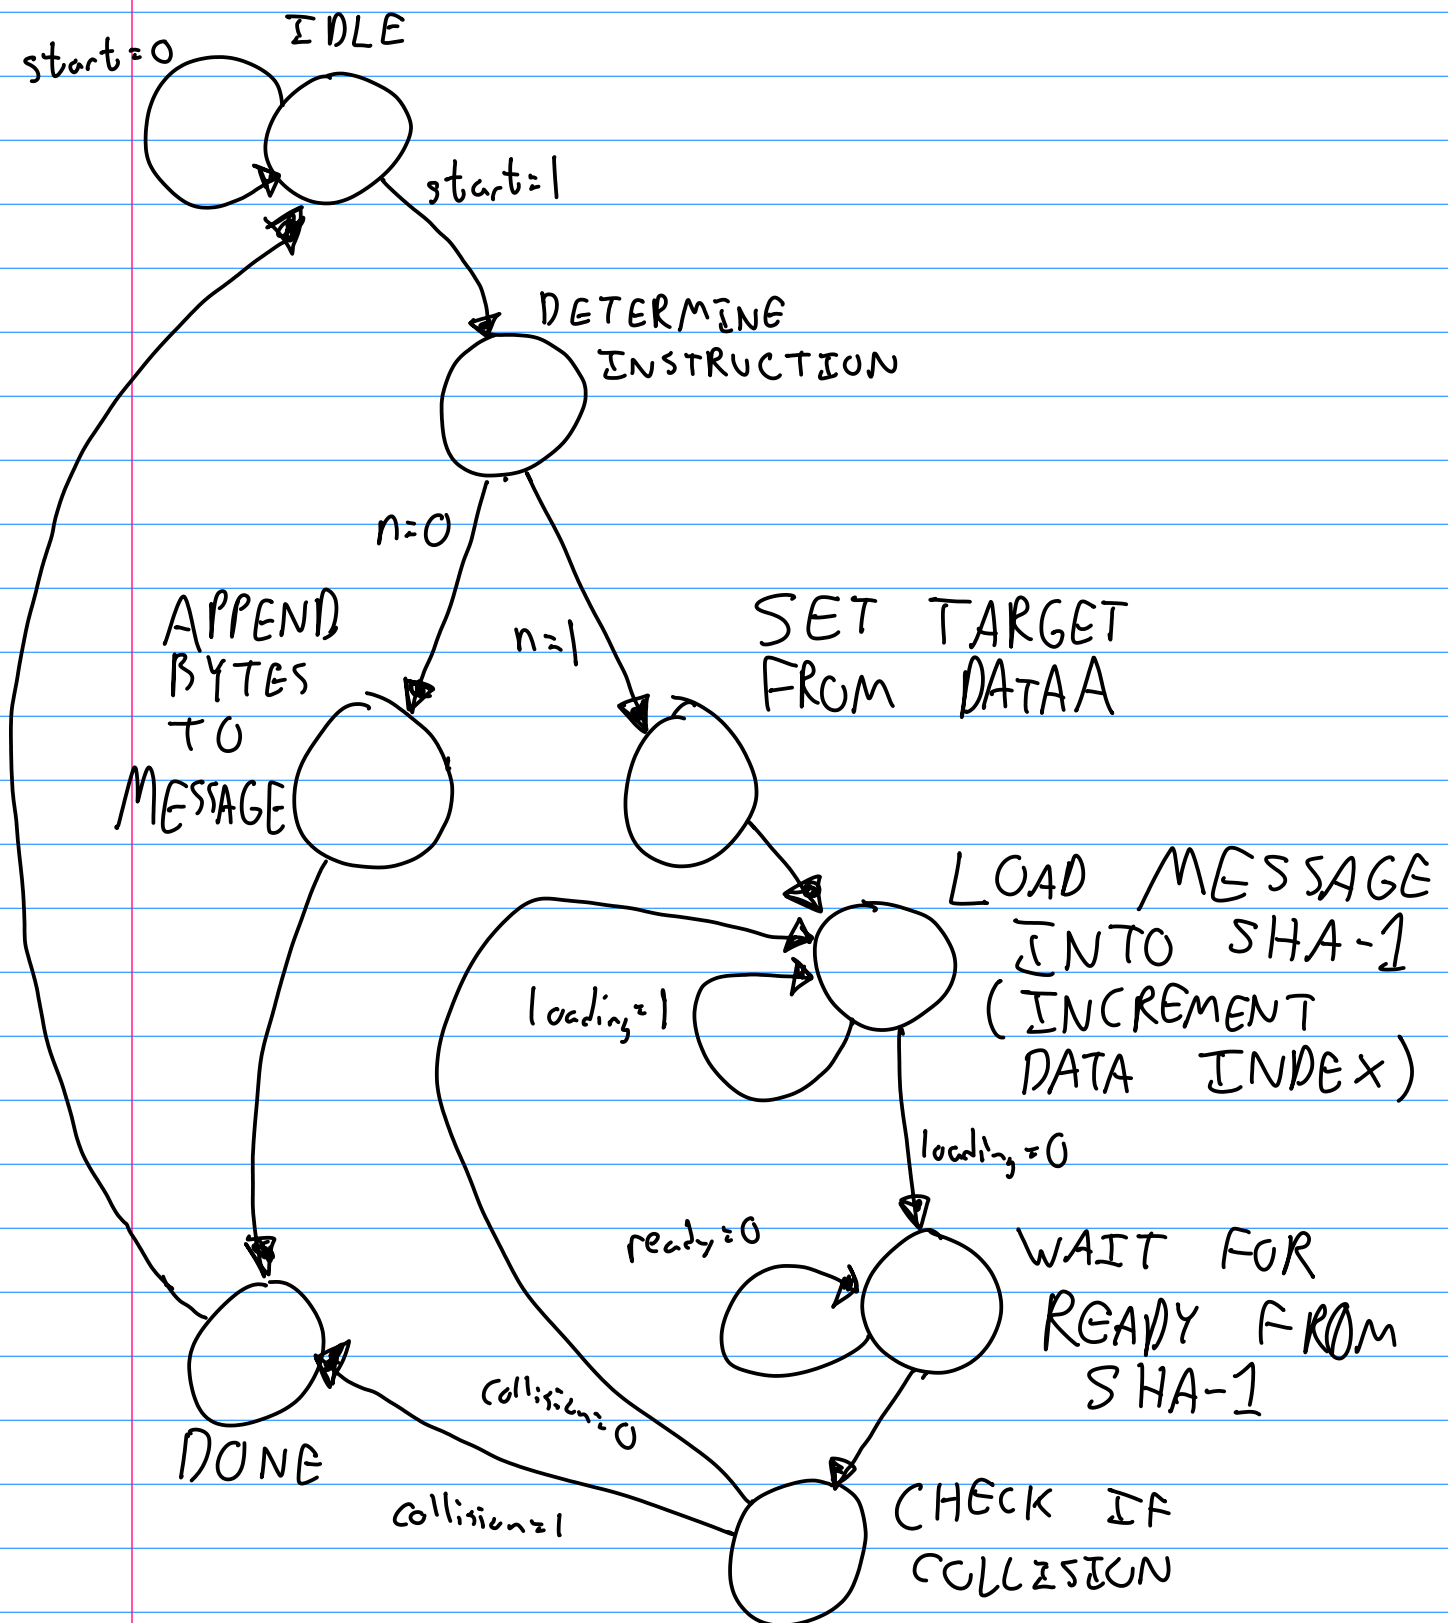 IDLE
start=0
start=1
DETERMINE
INSTRUCTION
n=0
n=1
APPEND
BYTES
TO
MESSAGE
SET TARGET
FROM DATAA
LOAD MESSAGE
INTO SHA-1
(INCREMENT
DATA INDEX)
loading=1
loading=0
ready=0
WAIT FOR
READY FROM
SHA-1
collision=0
DONE
collision=1
CHECK IF
COLLISION